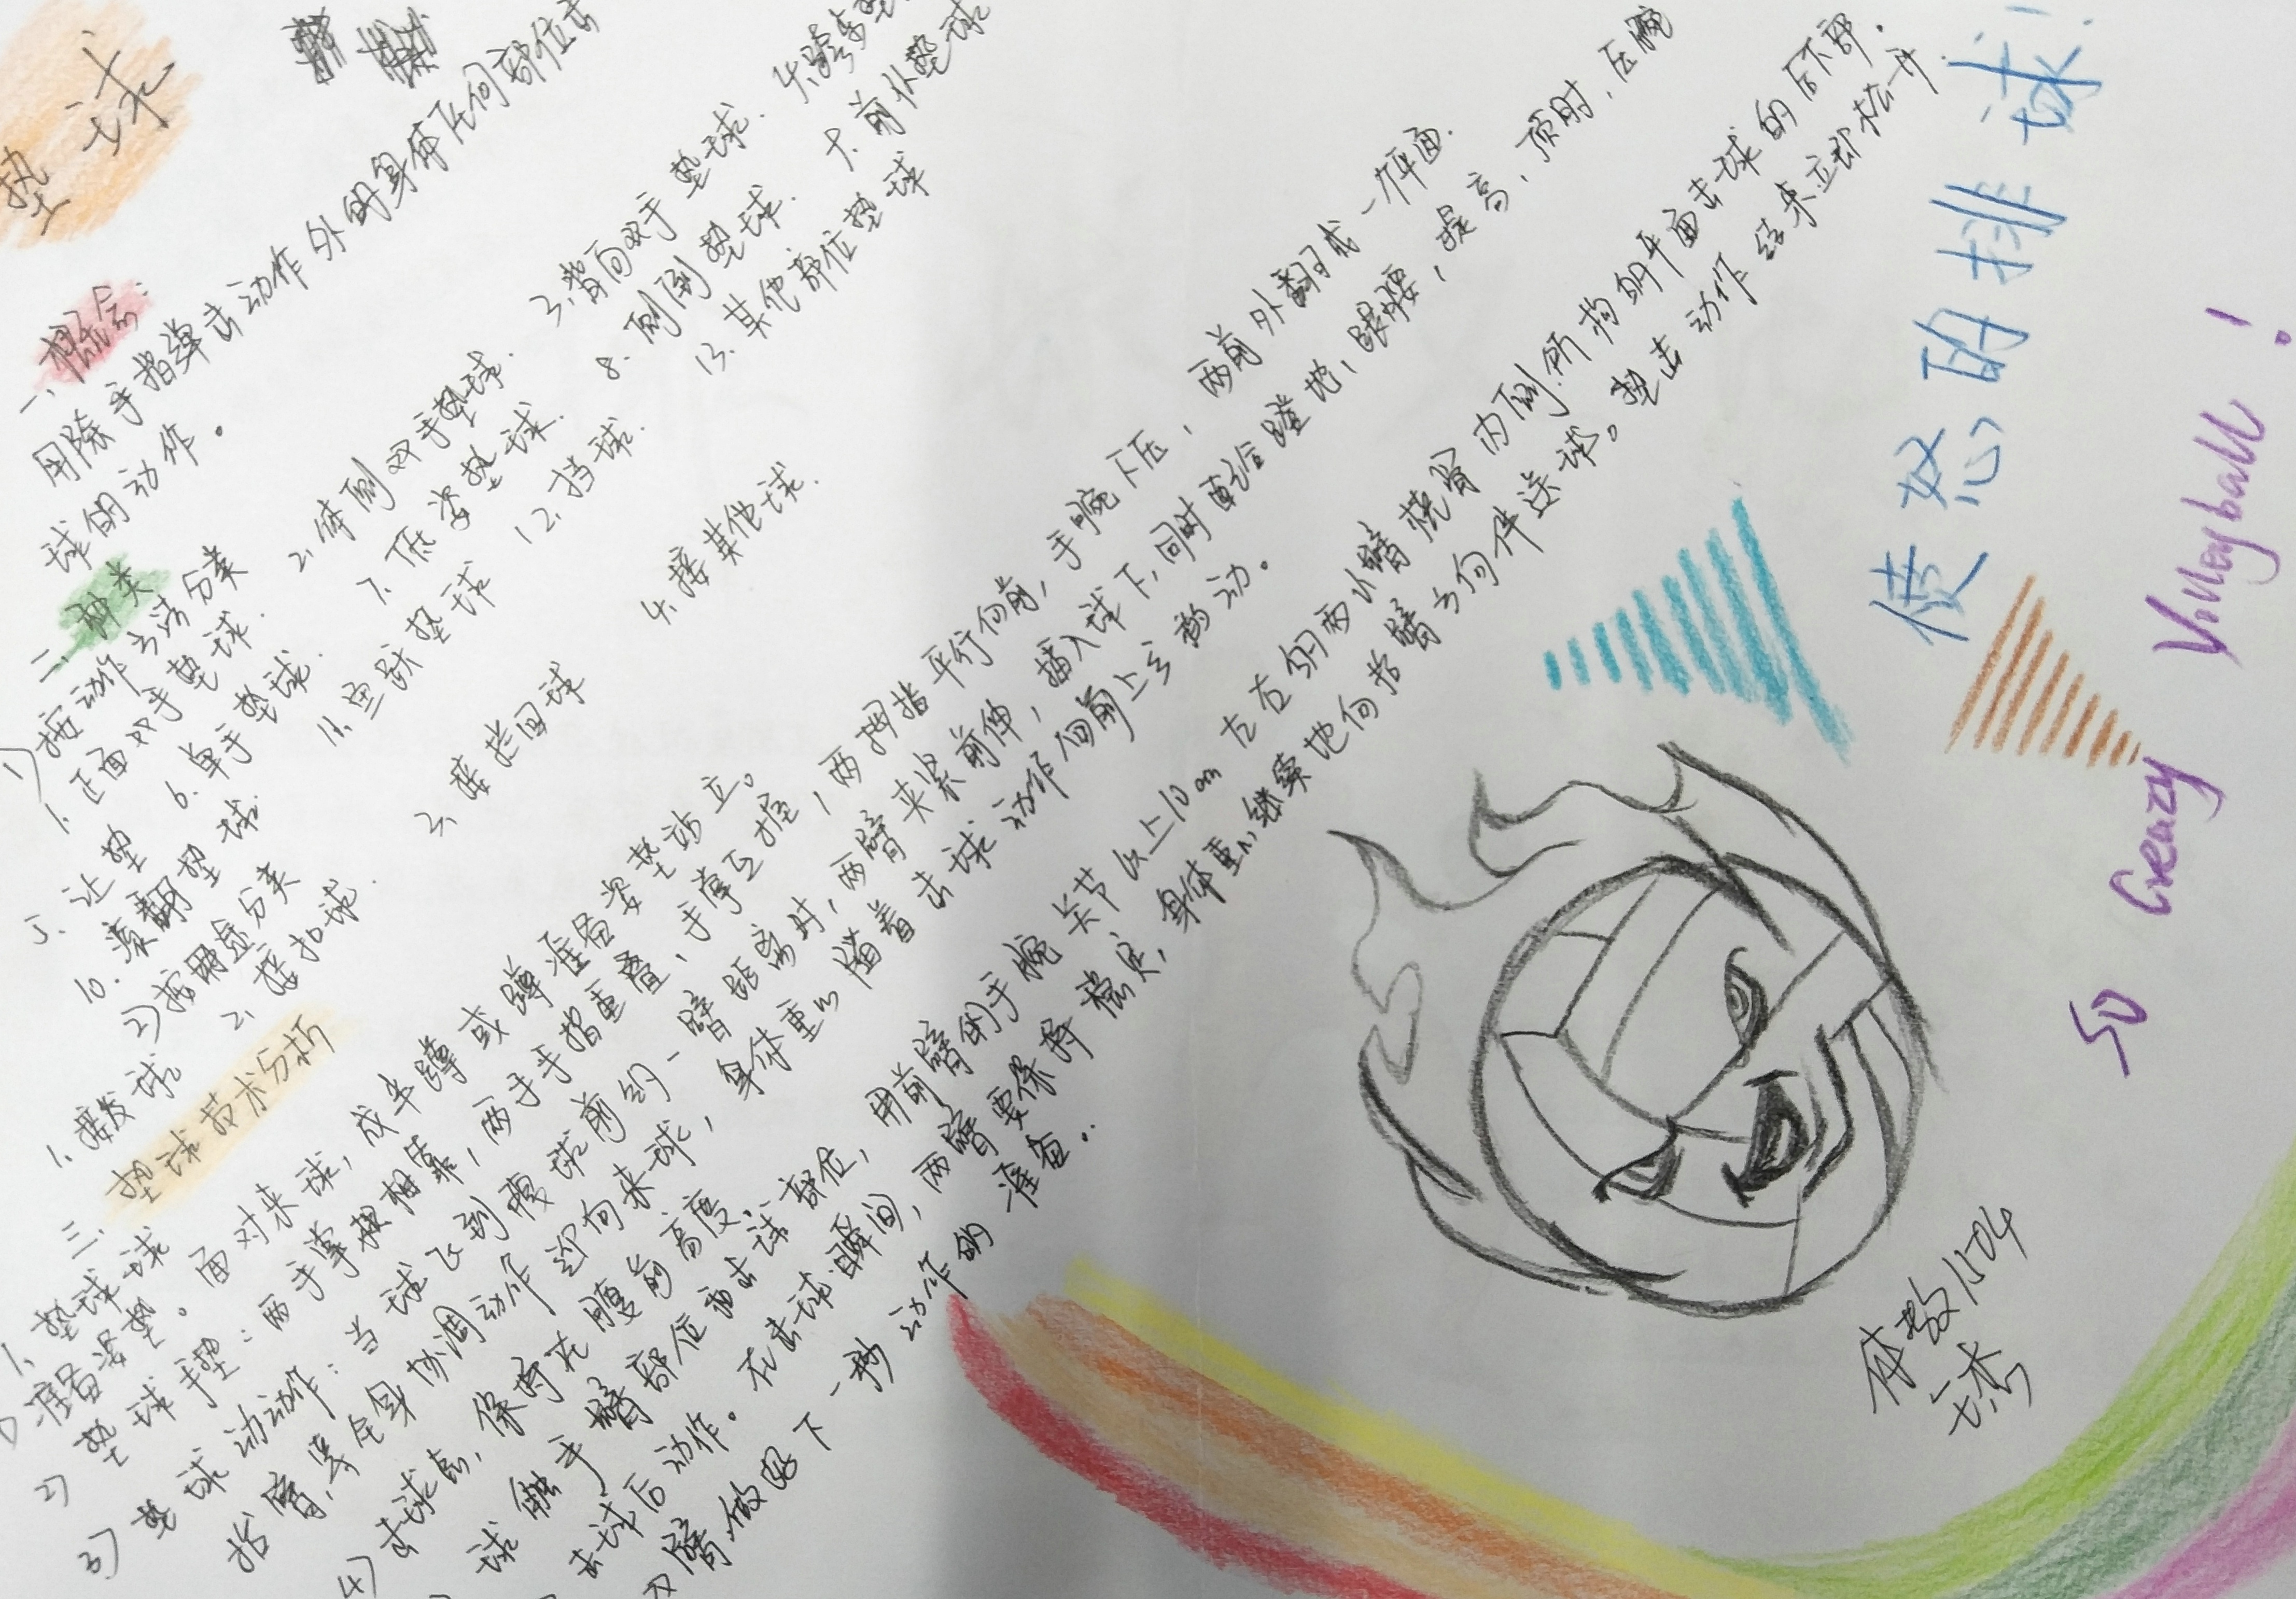 垫球
一、概念：
用除手指弹击动作外的身体任何部位击
球的动作。
二、种类
1）按动作方法分类
1. 正面双手垫球. 2. 体侧双手垫球. 3. 背向双手垫球. 4. 跨步垫
5. 让垫 6. 单手垫球. 7. 低姿垫球. 8. 侧倒垫球. 9. 前仆垫球
10. 滚翻垫球. 11. 鱼跃垫球 12. 挡球. 13. 其他部位垫球
2）按用途分类
1. 接发球 2. 接扣球. 3. 接拦回球 4. 接其他球.
三. 垫球技术分析
1. 垫球球
1) 准备姿势。面对来球，成半蹲或蹲准备姿势站立。
2) 垫球手型：两手掌根相靠，两手手指重叠，手掌互握，两拇指平行向前，手腕下压，两前外翻成一个平面.
3) 垫球动动作：当球飞到腹球前约一臂距离时，两臂夹紧前伸，插入球下，同时蹬地，跟腰，提高、顶肘，压腕
抬臂，等全身协调动作迎向来球，身体重心随着击球动作向前上方移动。
4) 击球点，保持在腹前高度.
球触手臂部位或击球部位，用前臂的手腕关节以上10cm左右的两小臂桡骨内侧所构的平面击球的后下部.
击球后动作。在击球瞬间，两臂要保持稳定，身体重心继续地向抬臂方向伴送球。垫击动作结束立即松开
双臂，做好下一秒动作的准备..
愤怒的排球！
So Crazy Volleyball！
体教1504